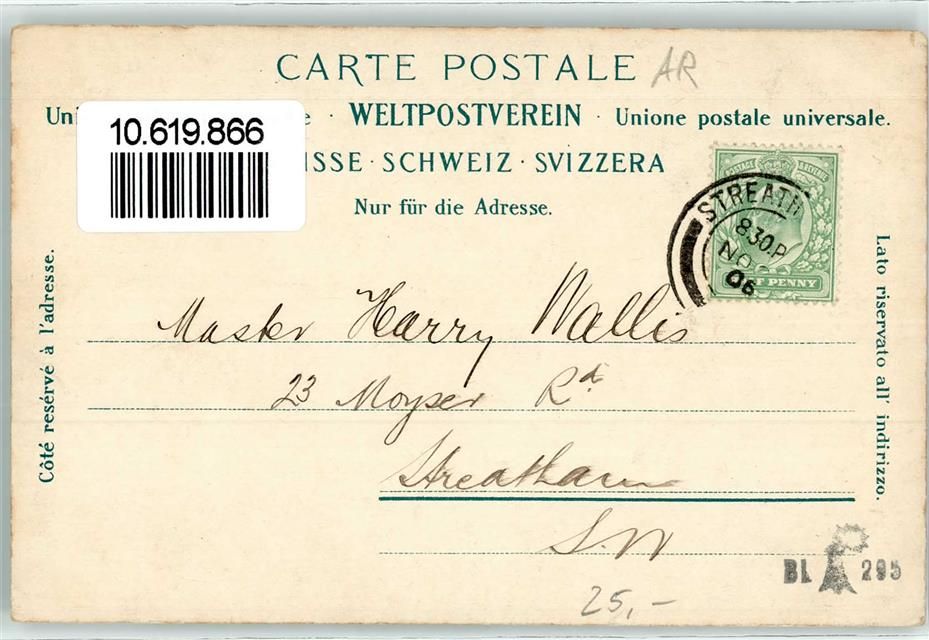 CARTE POSTALE AR
Uni · WELTPOSTVEREIN · Unione postale universale.
10.619.866
ISSE · SCHWEIZ · SVIZZERA
Nur für die Adresse.
POSTAGE & REVENUE
STREATH
8 30 P
NO
06
F PENNY
Côté reservé à l'adresse.
Lato riservato all' indirizzo.
Master Harry Wallis
23 Moyser Rd
Streatham
S.W
BL 295
25,-